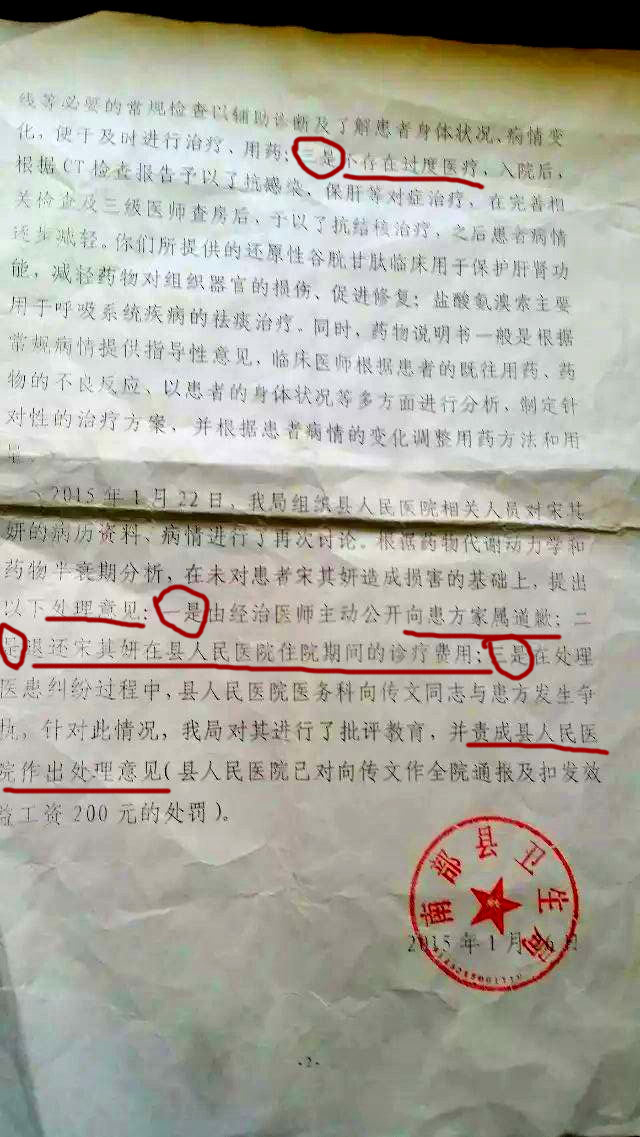 线等必要的常规检查以辅助诊断及了解患者身体状况、病情变
化，便于及时进行治疗、用药；三是不存在过度医疗，入院后，
根据CT检查报告予以了抗感染，保肝等对症治疗，在完善相
关检查及三级医师查房后，予以了抗结核治疗，之后患者病情
逐步减轻。你们所提供的还原性谷胱甘肽临床用于保护肝肾功
能，减轻药物对组织器官的损伤、促进修复；盐酸氨溴索主要
用于呼吸系统疾病的祛痰治疗。同时，药物说明书一般是根据
常规病情提供指导性意见，临床医师根据患者的既往用药、药
物的不良反应、以患者的身体状况等多方面进行分析，制定针
对性的治疗方案，并根据患者病情的变化调整用药方法和用
量。
2015年1月22日，我局组织县人民医院相关人员对宋其
妍的病历资料、病情进行了再次讨论。根据药物代谢动力学和
药物半衰期分析，在未对患者宋其妍造成损害的基础上，提出
以下处理意见：一是由经治医师主动公开向患方家属道歉；二
是退还宋其妍在县人民医院住院期间的诊疗费用；三是在处理
医患纠纷过程中，县人民医院医务科向传文同志与患方发生争
执，针对此情况，我局对其进行了批评教育，并责成县人民医
院作出处理意见（县人民医院已对向传文作全院通报及扣发效
益工资200元的处罚）。
南部县卫生局
2015年1月6日
-2-